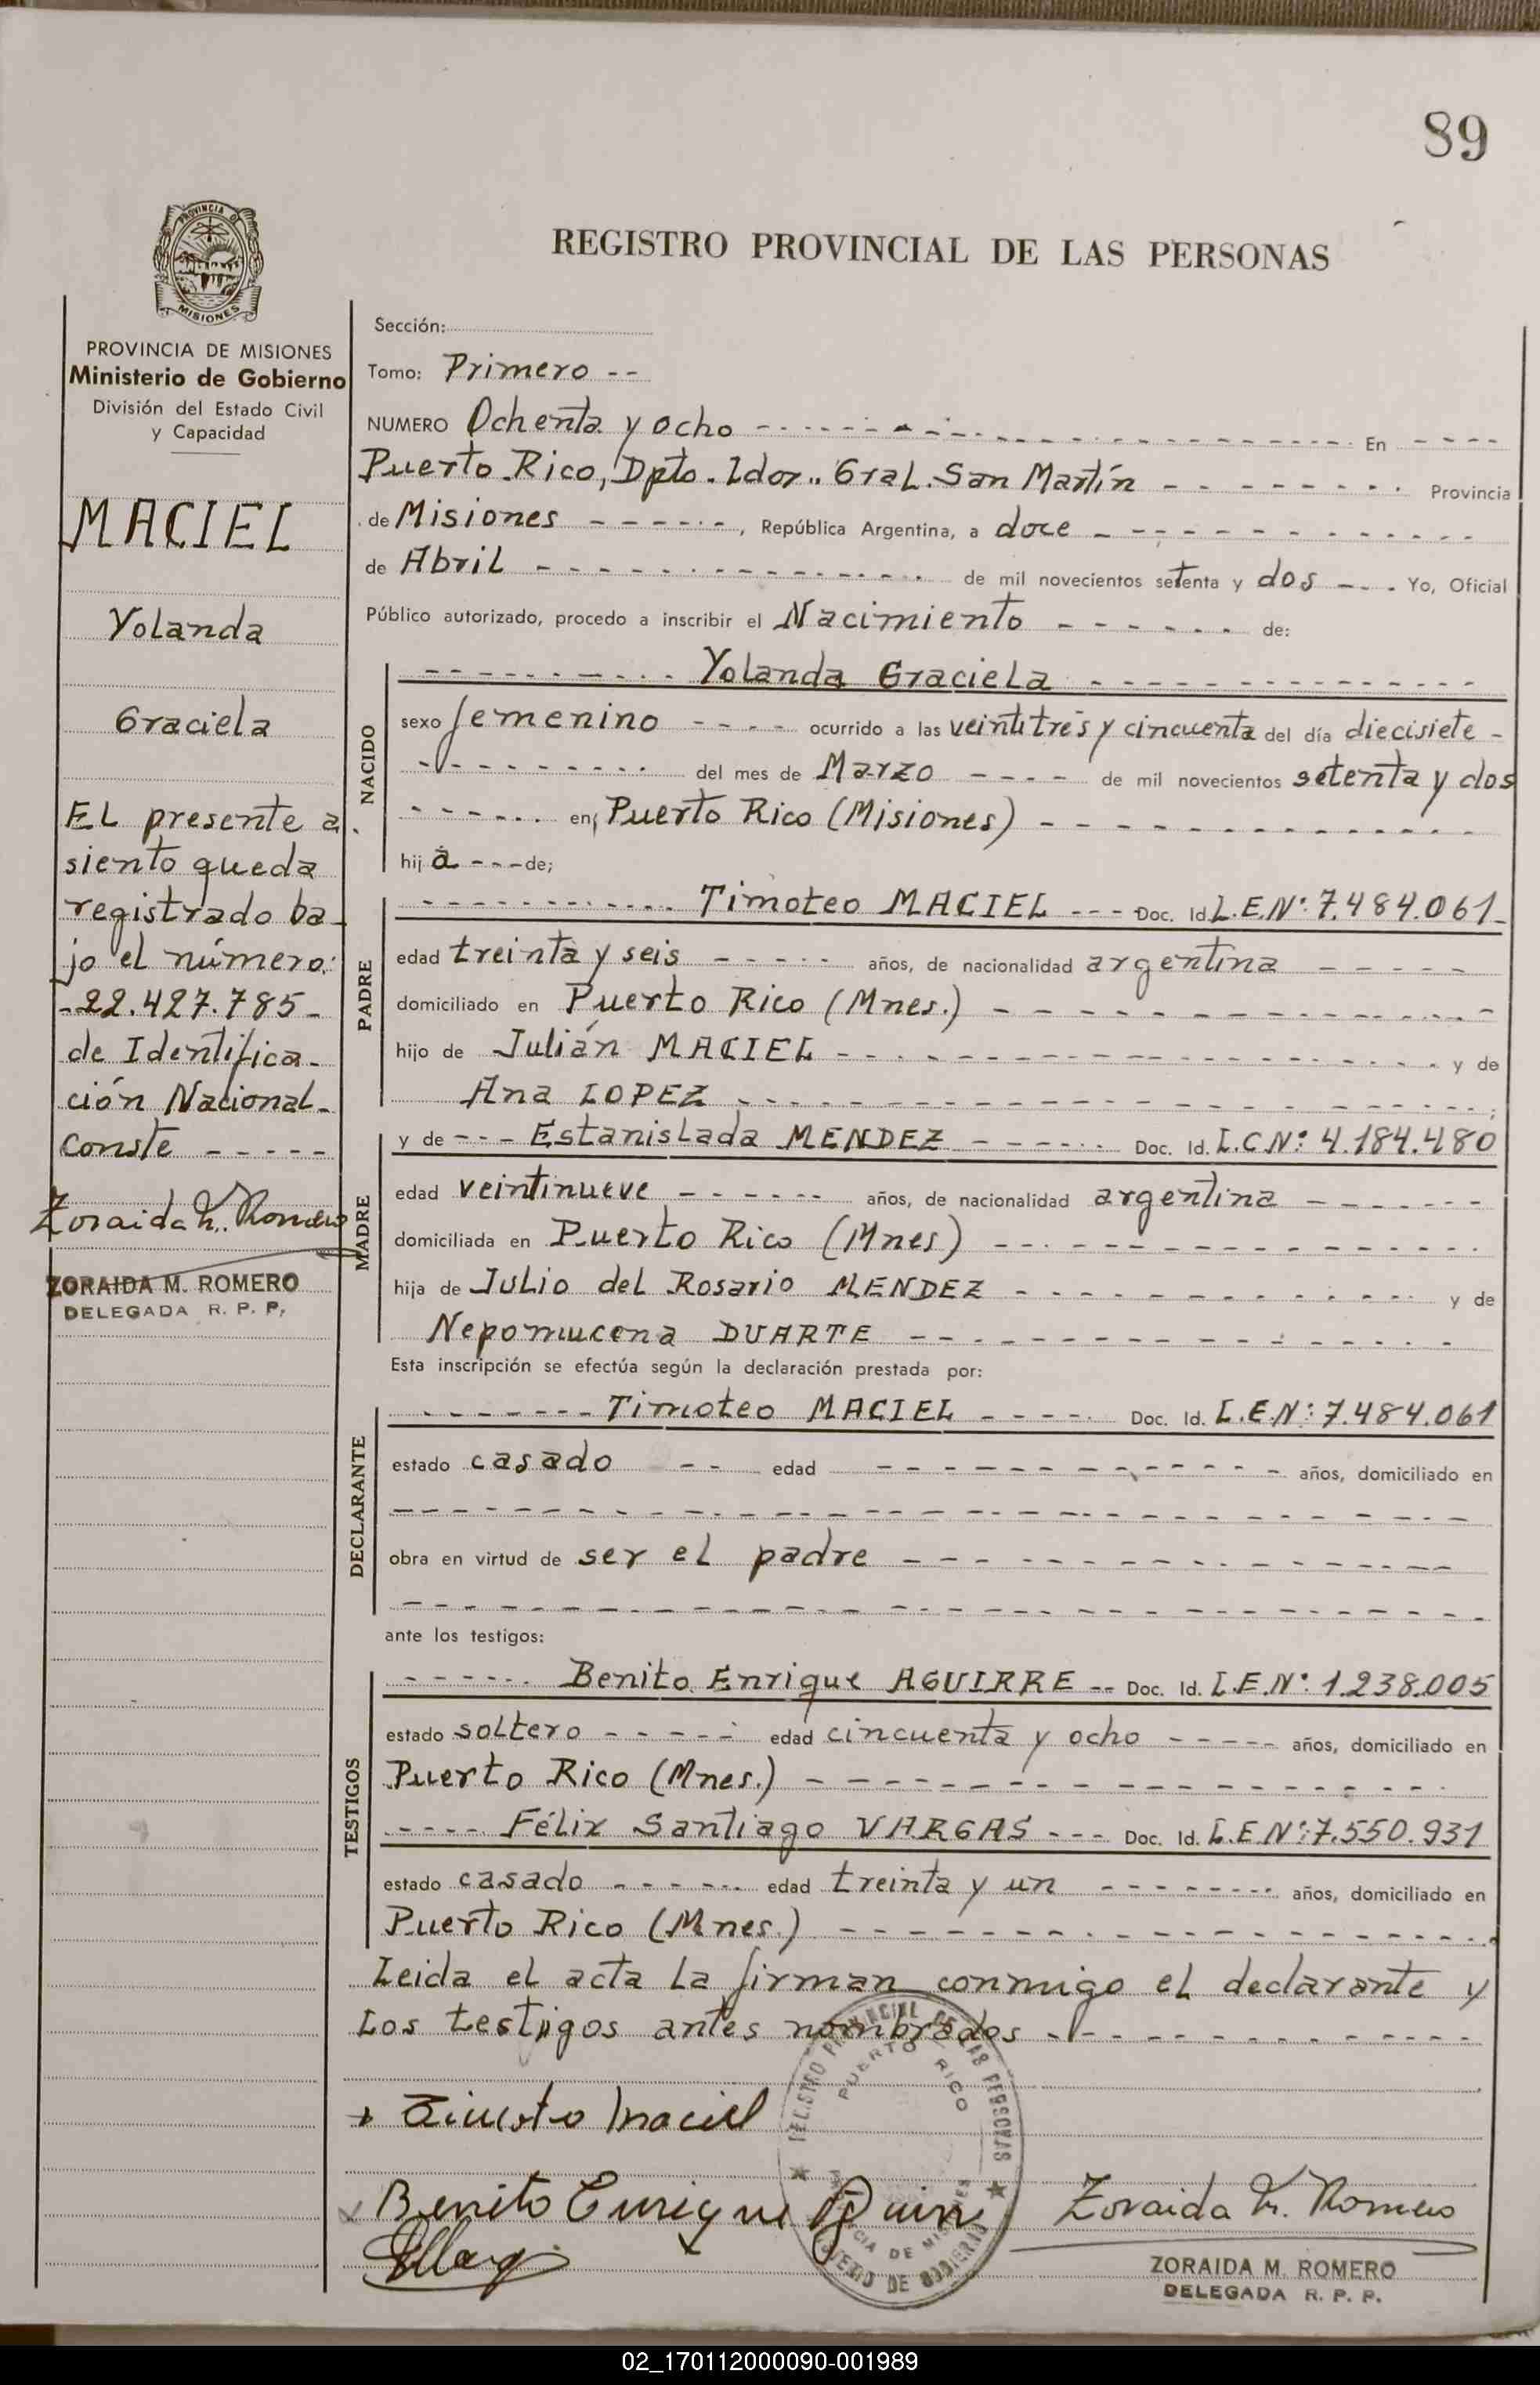 89
PROVINCIA DE
MISIONES
REGISTRO PROVINCIAL DE LAS PERSONAS
PROVINCIA DE MISIONES
Ministerio de Gobierno
División del Estado Civil
y Capacidad
MACIEL
Yolanda
Graciela
EL presente a
siento queda
registrado ba-
jo el número:
-22.427.785-
de Identifica-
ción Nacional-
Conste -----
Zoraida M. Romero
ZORAIDA M. ROMERO
DELEGADA R. P. P.
Sección:
Tomo: Primero --
NUMERO Ochenta y ocho ---------- En ----
Puerto Rico, Dpto. Ldor. Gral. San Martín -------- Provincia
de Misiones ------, República Argentina, a doce ----------
de Abril ---------- de mil novecientos setenta y dos --- Yo, Oficial
Público autorizado, procedo a inscribir el Nacimiento ------- de:
NACIDO
---------- Yolanda Graciela ----------
sexo femenino ---- ocurrido a las veintitrés y cincuenta del día diecisiete -
---------- del mes de Marzo ---- de mil novecientos setenta y dos
------ en, Puerto Rico (Misiones) ----------
hij a ---de;
PADRE
---------- Timoteo MACIEL --- Doc. Id. L.E.Nº: 7.484.061-
edad treinta y seis ----- años, de nacionalidad argentina -----
domiciliado en Puerto Rico (Mnes.) ----------
hijo de Julián MACIEL ---------- y de
Ana LOPEZ ----------;
MADRE
y de --- Estanislada MENDEZ ------ Doc. Id. L.C Nº: 4.184.480
edad veintinueve ------ años, de nacionalidad argentina ------
domiciliada en Puerto Rico (Mnes) ----------
hija de Julio del Rosario MENDEZ ---------- y de
Nepomucena DUARTE ----------
Esta inscripción se efectúa según la declaración prestada por:
DECLARANTE
-------- Timoteo MACIEL ----- Doc. Id. L.E.Nº: 7.484.061
estado casado -- edad ---------- años, domiciliado en
----------
obra en virtud de ser el padre ----------
----------
ante los testigos:
TESTIGOS
------ Benito Enrique AGUIRRE -- Doc. Id. L.E.Nº: 1.238.005
estado soltero ----- edad cincuenta y ocho ----- años, domiciliado en
Puerto Rico (Mnes.) ----------
----- Félix Santiago VARGAS --- Doc. Id. L.E.Nº: 7.550.931
estado casado ------ edad treinta y un -------- años, domiciliado en
Puerto Rico (Mnes.) ----------
Leida el acta la firman conmigo el declarante y
los testigos antes nombrados ----------
REGISTRO PROVINCIAL DE LAS PERSONAS
PUERTO RICO
Timoteo Maciel
Benito Enrique
Zoraida M. Romero
ZORAIDA M. ROMERO
DELEGADA R. P. P.
02_170112000090-001989